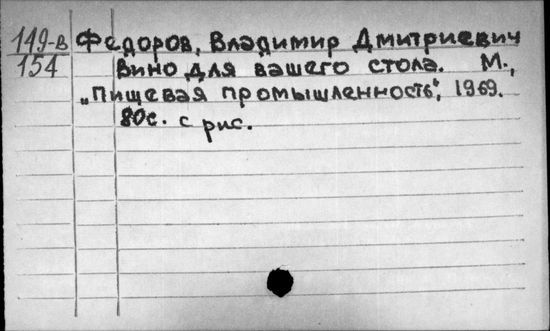 149-В Федоров, Владимир Дмитриевич
154 Вино для вашего стола. М.,
„Пищевая промышленность", 1969.
80с. с рис.